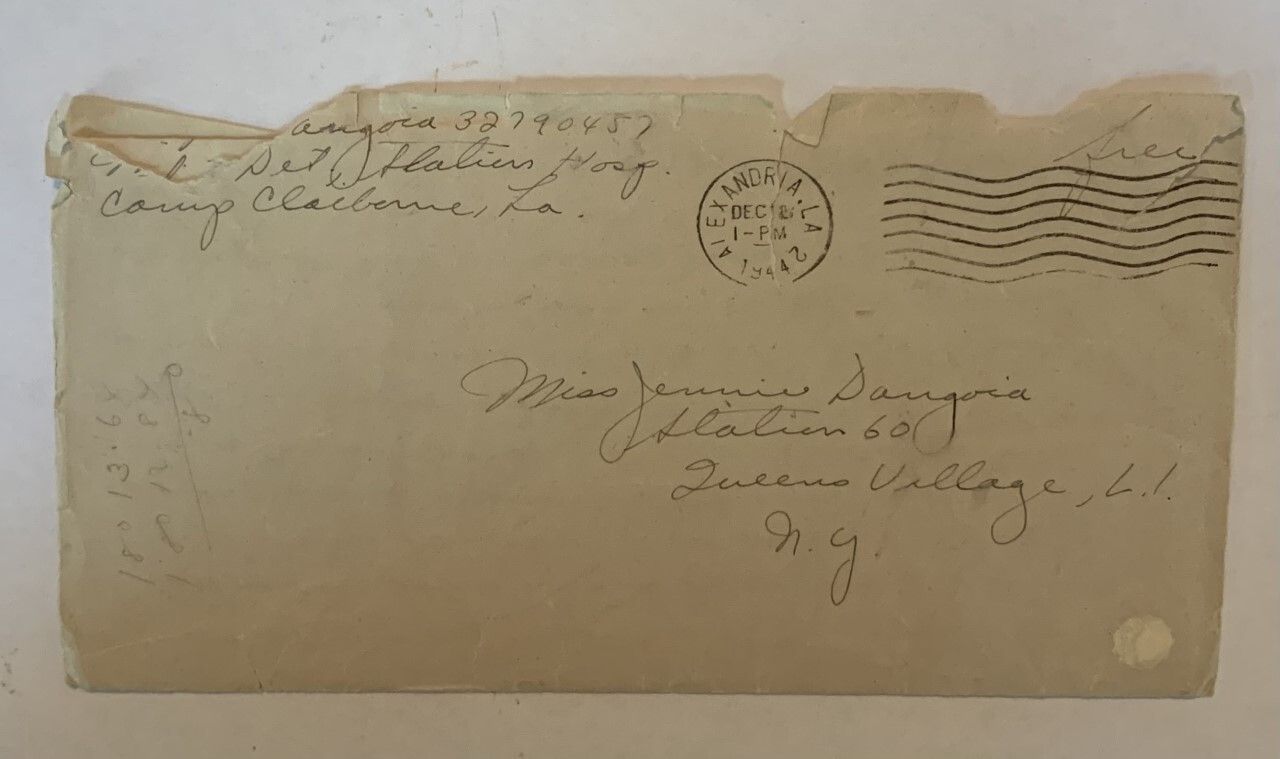 angoia 32790457
Det, Station Hosp.
Camp Claiborne, La.
Free
ALEXANDRIA, LA
DEC
1-PM
1944
Miss Jennie Dangoia
Station 60
Queens Village, L.I.
N.Y.